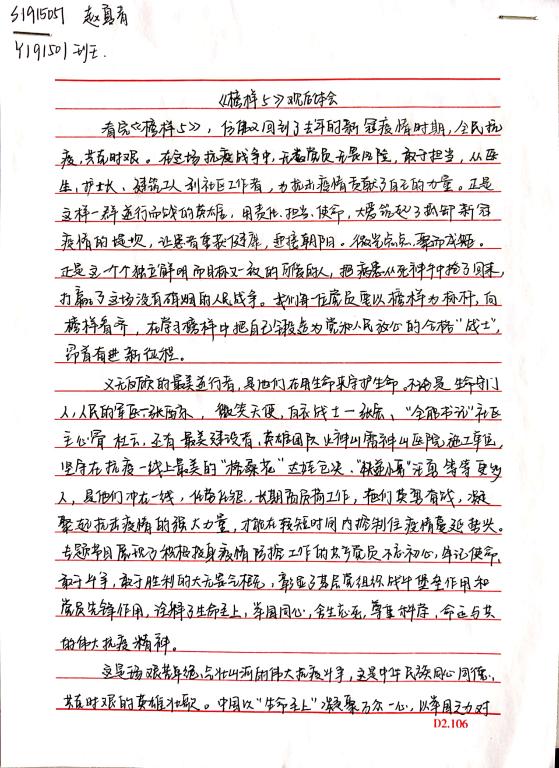 S1915051 赵真有
Y191501班
《榜样5》观后体会
看完《榜样5》，仿佛又回到了去年的新冠疫情时期，全民抗
疫，共克时艰。在这场抗疫战争中，无数党员无畏风险，敢于担当，从医
生、护士长、建筑工人到社区工作者，为抗击疫情贡献了自己的力量。正是
这样一群逆行而战的英雄，用责任、担当、使命，大爱筑起了抵御新冠
疫情的堤坝，让患者重获健康，迎接朝阳。微光点点，聚而成炬。
正是这一个个独立鲜明而目标又一致的可信的人，把病患从死神手中抢了回来，
打赢了这场没有硝烟的人民战争。我们每一位党员要以榜样为标杆，向
榜样看齐，在学习榜样中把自己锻造为党和人民放心的合格“战士”，
昂首奋进新征程。
义无反顾的最美逆行者，是他们在用生命来守护生命。不论是生命守门
人，人民的军医张西京，微笑天使，白衣战士一张辰，“全能书记”社区
主心骨杜云，还有最美建设者，英雄团队火神山雷神山医院施工单位，
坚守在抗疫一线上最美的“格桑花”达娃 “快递小哥”汪勇等等更多
人，是他们冲在一线，长期高负荷工作，
聚起抗击疫情的强大力量，才能在较短时间内控制住疫情蔓延势头。
专题节目展现了积极投身疫情防控工作的共产党员不忘初心，牢记使命，
敢于斗争，敢于胜利的大无畏气概，彰显了基层党组织战斗堡垒作用和
党员先锋作用，诠释了生命至上，举国同心，舍生忘死，尊重科学，命运与共
的伟大抗疫精神。
这是场艰苦卓绝、气壮山河的伟大抗疫斗争，这是中华民族同心同德、
共克时艰的英雄壮歌。中国以“生命至上”凝聚万众一心，以举国之力对
D2.106